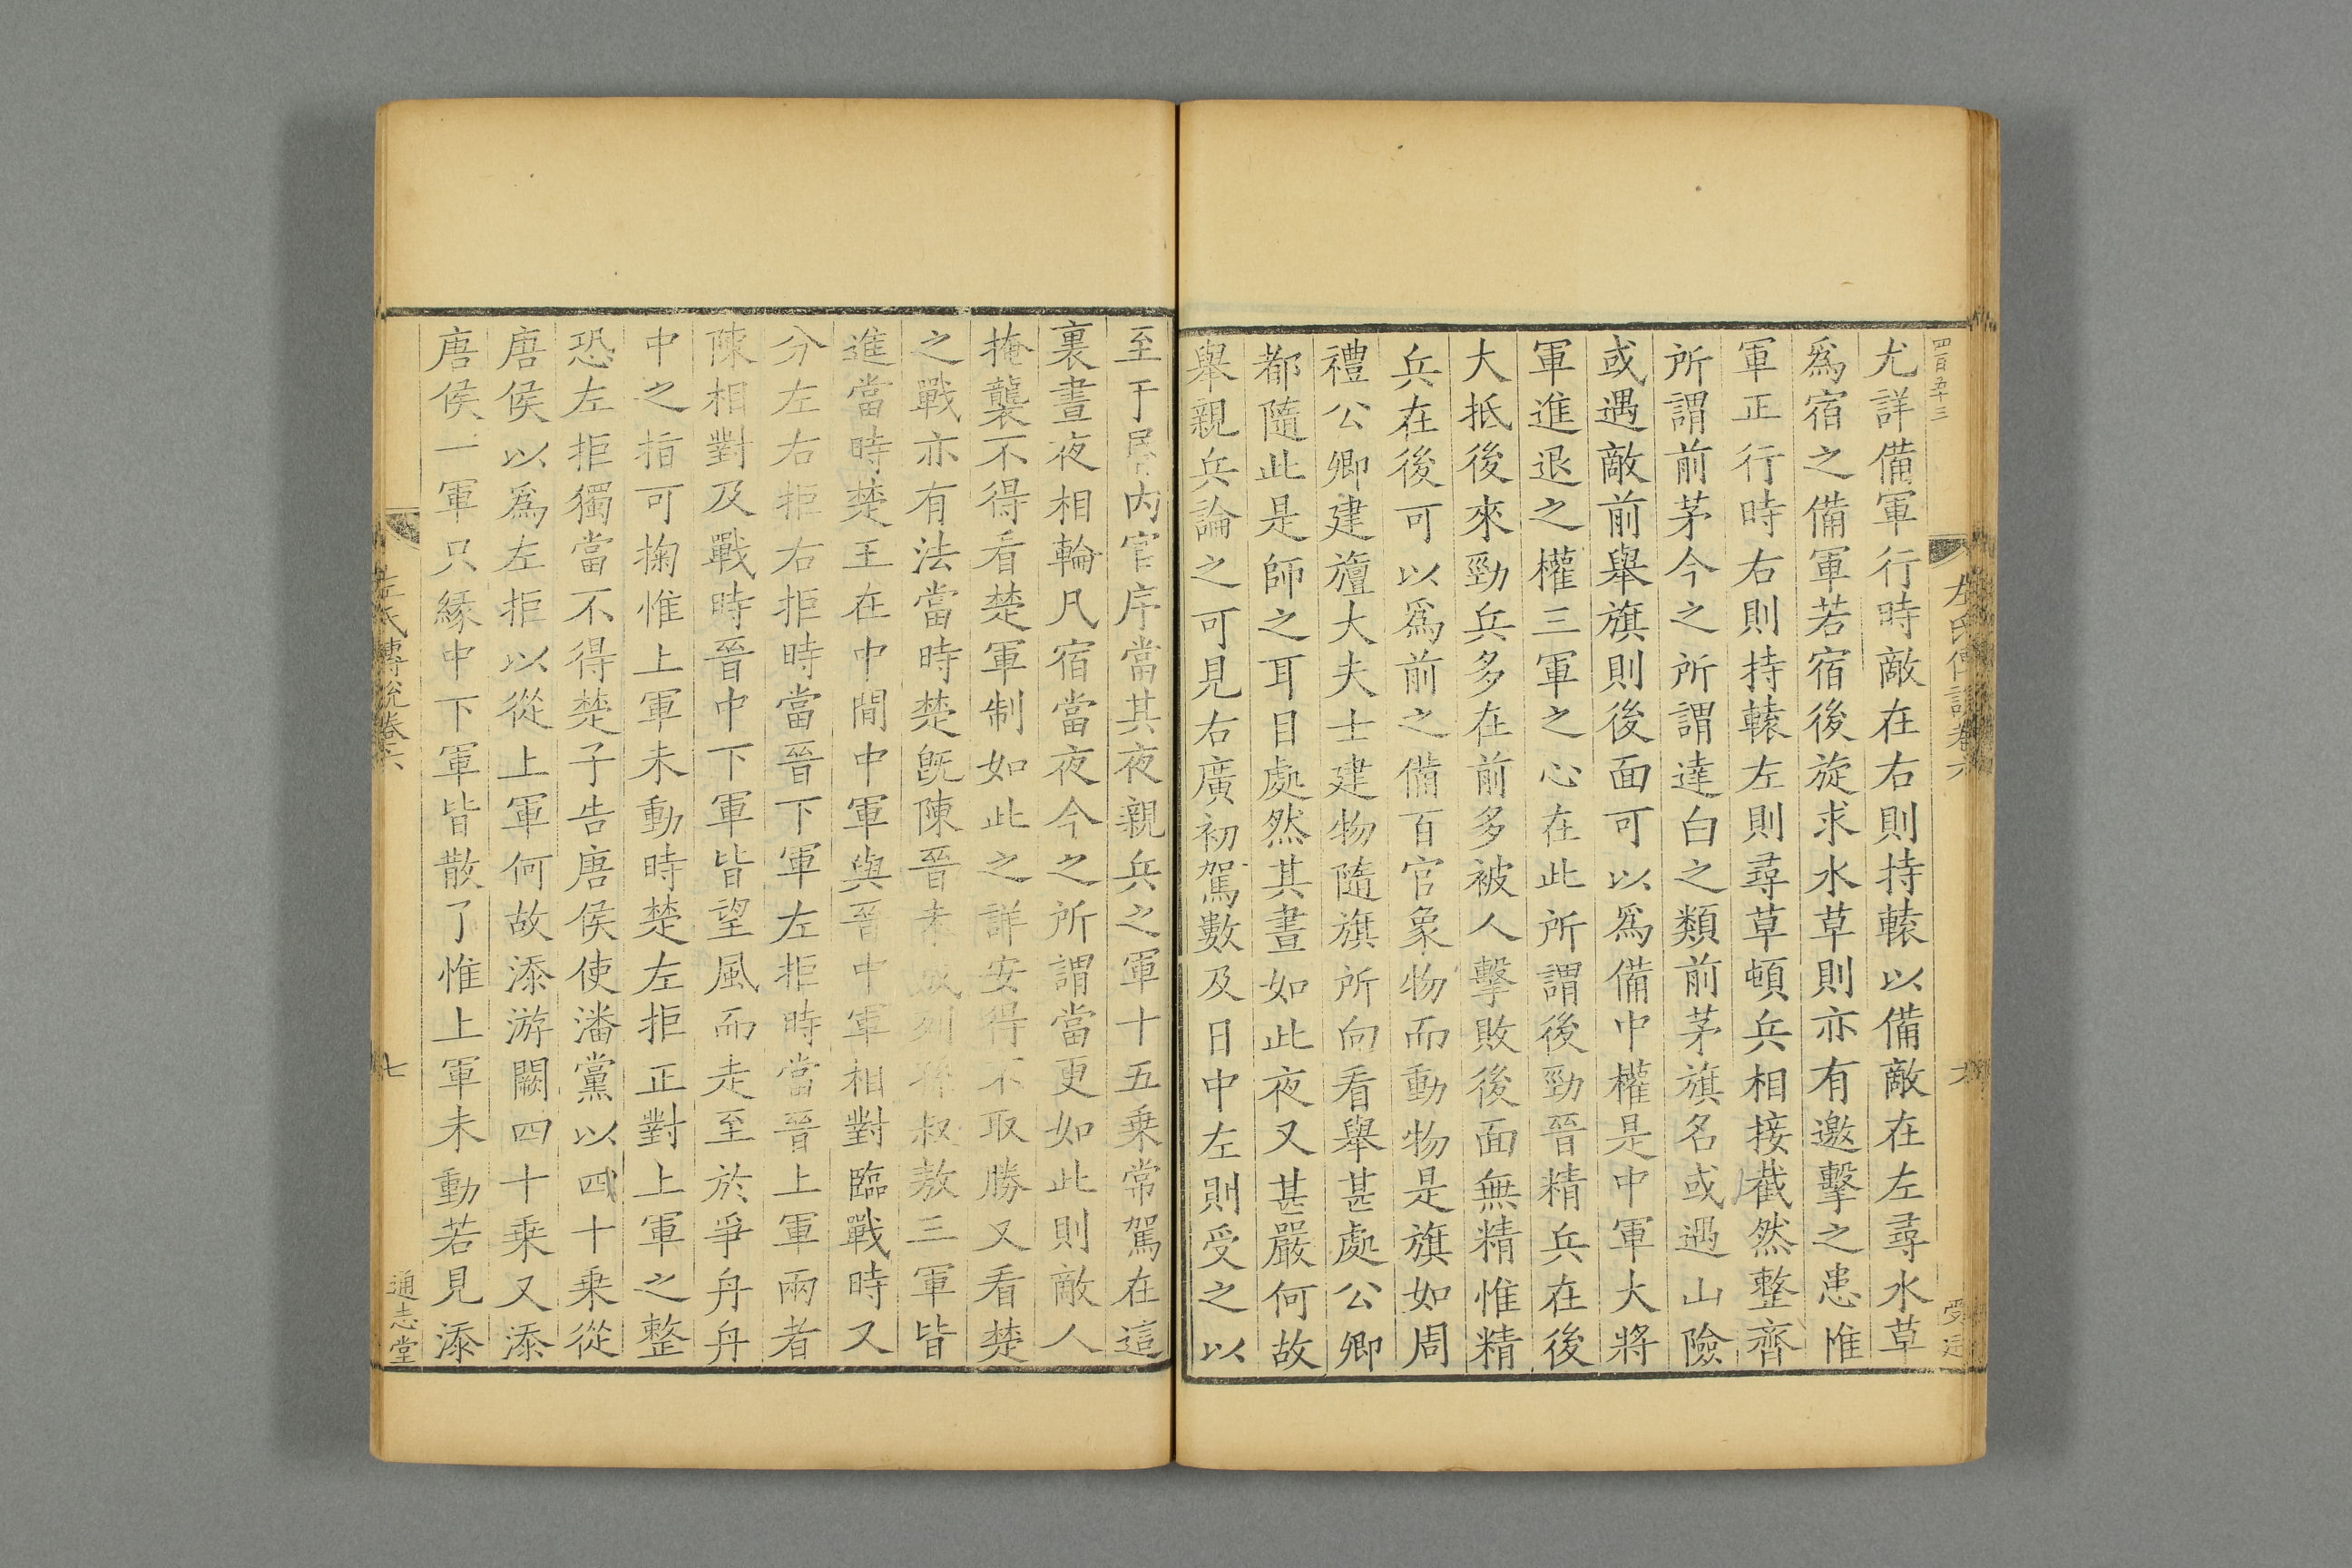 四百五十三
左氏傳說卷六
六
尤詳備軍行時敵在右則持轅以備敵在左尋水草
爲宿之備軍若宿後旋求水草則亦有邀擊之患惟
軍正行時右則持轅左則尋草頓兵相接截然整齊
所謂前茅今之所謂達白之類前茅旗名或遇山險
或遇敵前舉旗則後面可以爲備中權是中軍大將
軍進退之權三軍之心在此所謂後勁晉精兵在後
大抵後來勁兵多在前多被人擊敗後面無精惟精
兵在後可以爲前之備百官象物而動物是旗如周
禮公卿建旜大夫士建物隨旗所向看舉甚處公卿
都隨此是師之耳目處然其晝如此夜又甚嚴何故
舉親兵論之可見右廣初駕數及日中左則受之以
至于昏內官序當其夜親兵之軍十五乗常駕在這
裏晝夜相輪凡宿當夜今之所謂當更如此則敵人
掩襲不得看楚軍制如此之詳安得不取勝又看楚
之戰亦有法當時楚旣陳晉未成列孫叔敖三軍皆
進當時楚王在中間中軍與晉中軍相對臨戰時又
分左右拒右拒時當晉下軍左拒時當晉上軍兩者
陳相對及戰時晉中下軍皆望風而走至於爭舟舟
中之指可掬惟上軍未動時楚左拒正對上軍之整
恐左拒獨當不得楚子告唐侯使潘黨以四十乗從
唐侯以爲左拒以從上軍何故添游闕四十乗又添
唐侯一軍只緣中下軍皆散了惟上軍未動若見添
左氏傳說卷六
七
通志堂